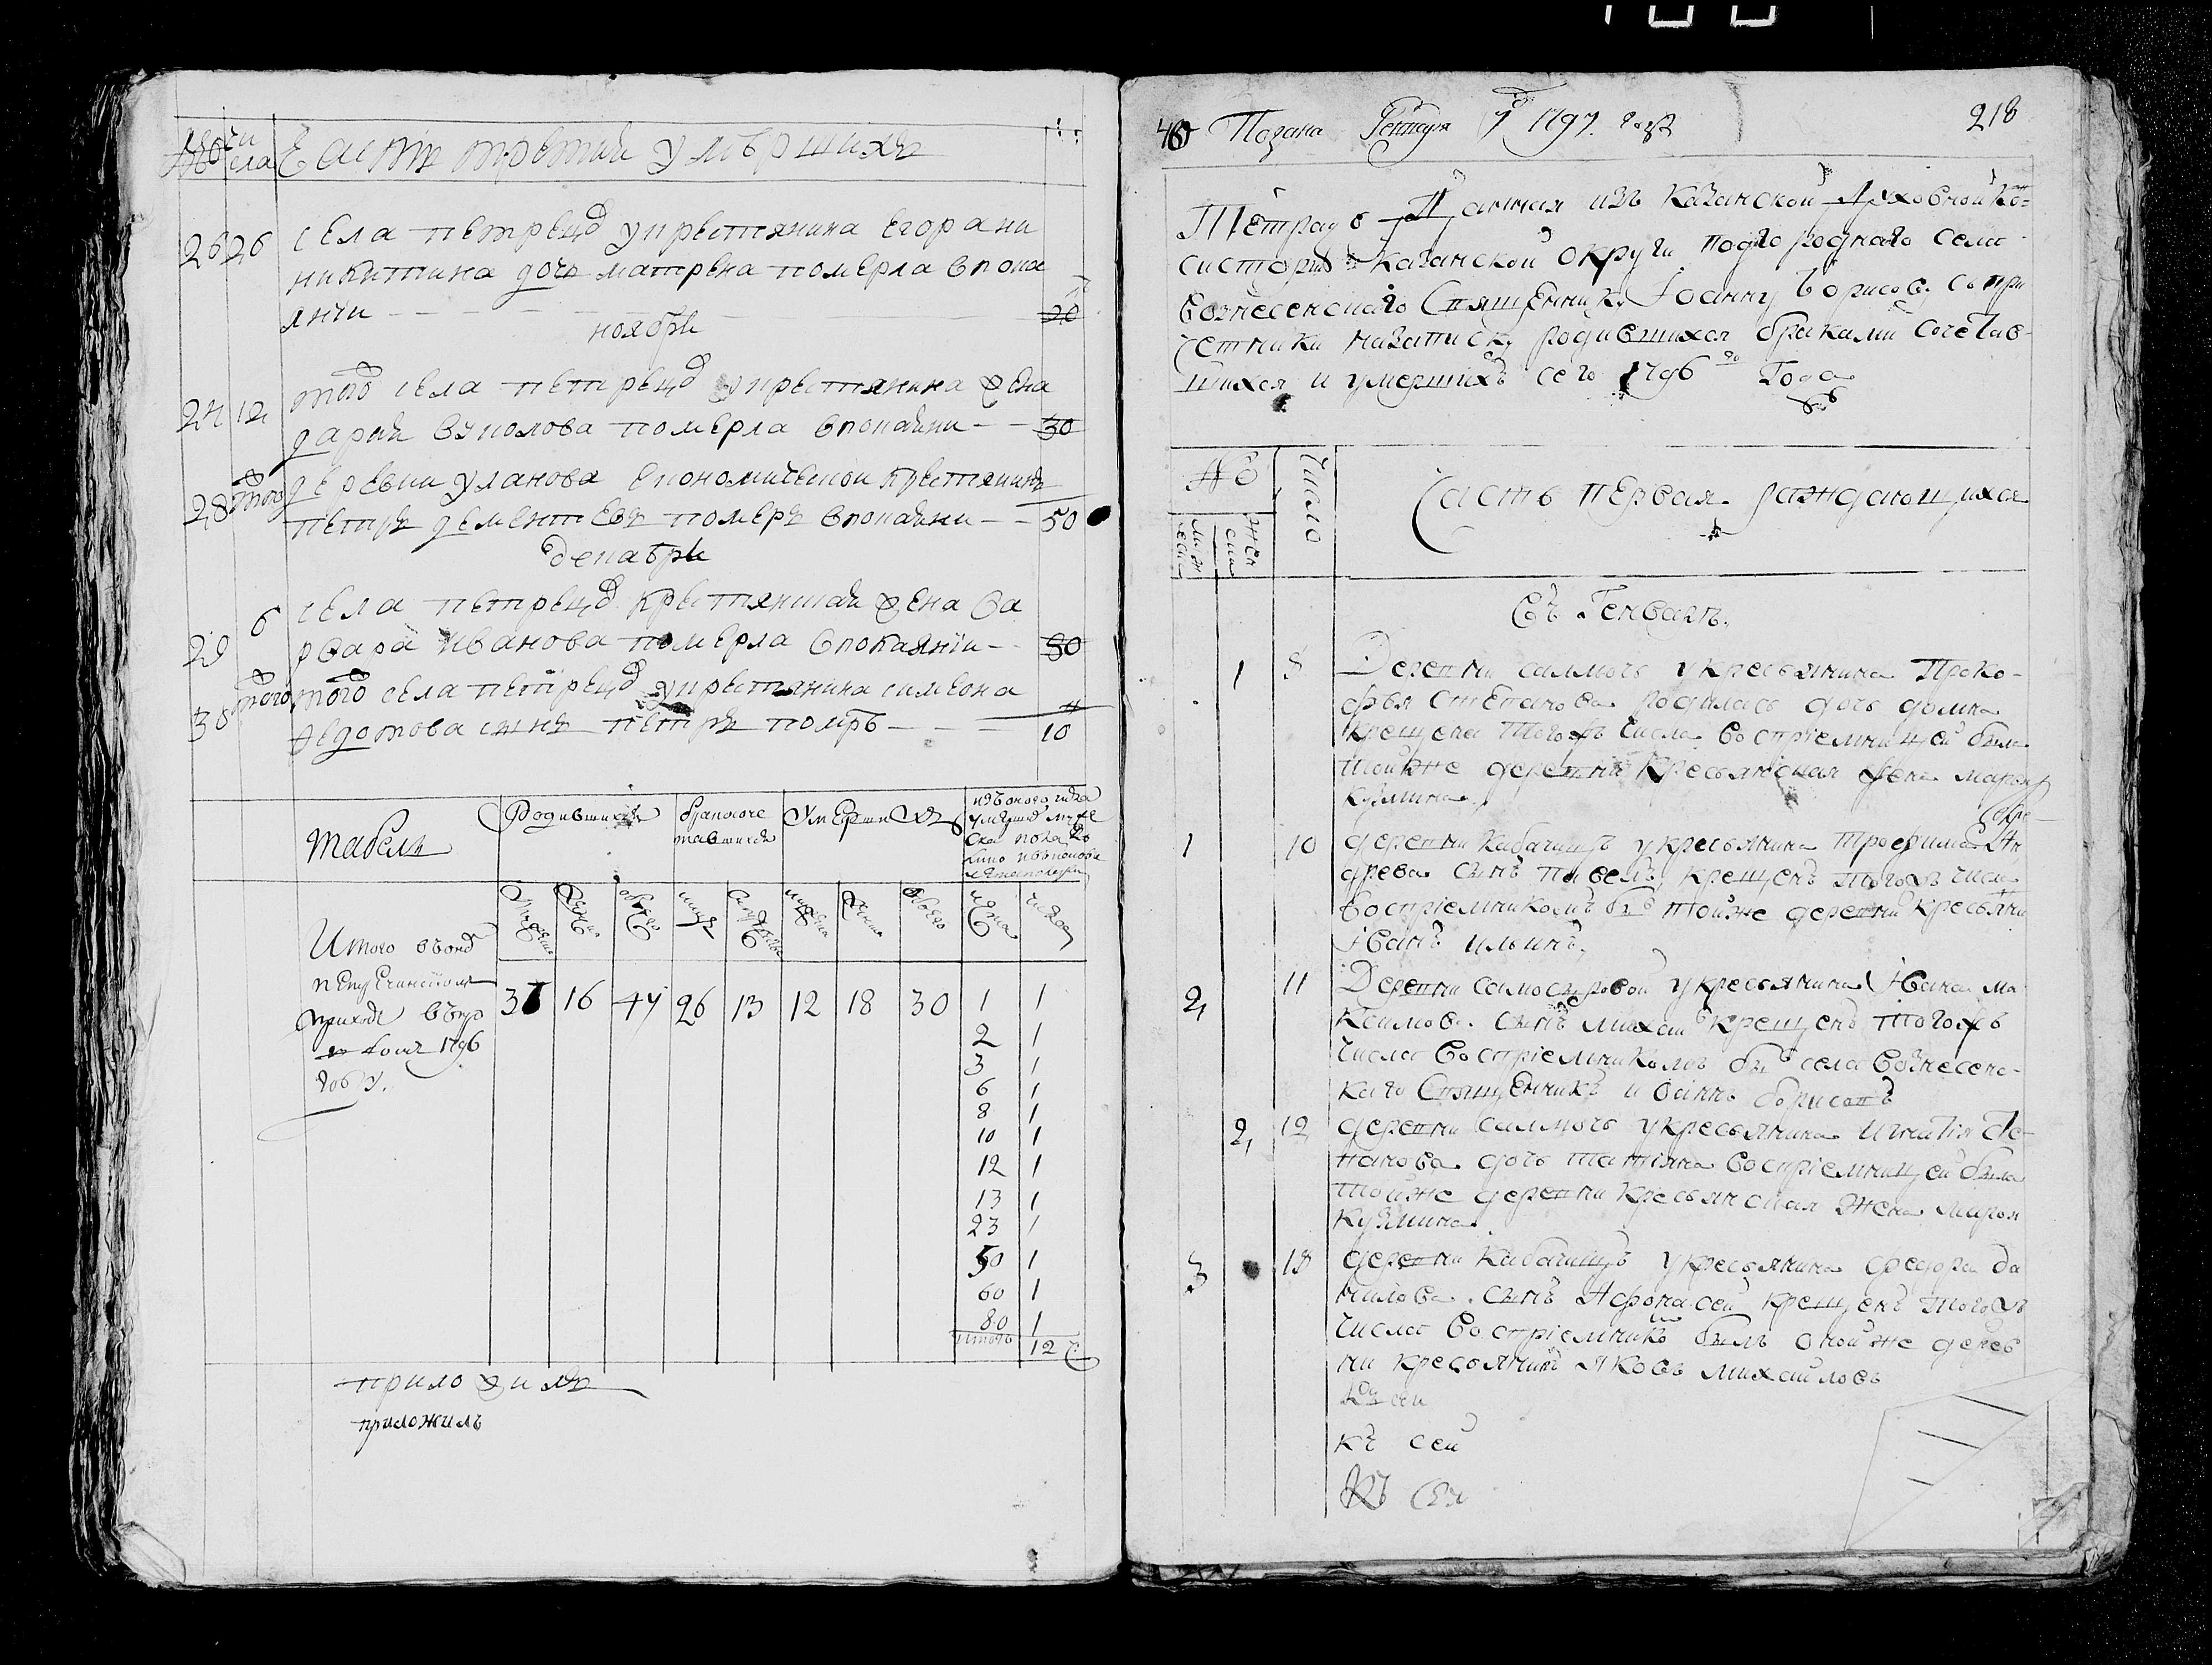 Часть третия умершихъ
26 26 села петрецо укрестянина Егора ни
никитина дочь матрена померла впока
янiи
20
ноября
того села петрецо укрестянина жена
12 дарья вуколова померла впокаянии 30
28 того деревни уланова економической крестянинъ
петръ дементевъ померъ впокаянии 50
декабря
6 села петрецо крестянская жена ва
29 рвара иванова померла впокаянiи 30
того того села петрецо укрестянина симеона
30 федотова сынъ петръ помръ 10
табель
Родившихся
бракосоче
тавшихся
Умершихъ
Итого
приходе
1796
году.
16 26 13 12 18 30 1 1
2 1
3 1
6 1
8 1
10 1
12 1
13 1
23 1
50 1
60 1
80 1
итого 12
приложилъ
приложилъ
Подана Генваря 1797. года
218
Тетрадь Данная изъ Казанской Духовной Ко=
систорiи Казанской округи подгороднаго села
Вознесенскаго Священнику Iоанну Борисов. сопри
четники назаписку родившихся браками сочетав-
шихся и умершихъ сего 1796го Года
№ Число
Часть первая раждающихся
муж
ески
жен
ски
Въ Генваре.
1 8 Деревни салмочь укресьянина Проко-
фья Степанова родилась дочь домна
крещена того жъ числа воспрiемницей была
тойже деревни кресьянская жена марья
кузмина.
1 10 деревни кабачищъ укресьянина трофима Ан
древа сынъ павелъ крещенъ тогожъ числа
воспрiемникомъ бы тойже деревни кресьяни
Iванъ ильинъ.
2 11 Деревни самосыровой укресьянина Iвана ма
ксимова. сынъ михаи крещенъ тогожъ
числа воспрiемникомъ бы села вознесенс-
каго Священникъ иоаннъ борисовъ
2 12 деревни салмочь укресьянина игнатiя Сте-
панова дочь татiяна воспрiемницей была
тойже деревни кресьянская жена марья
кузмина.
3 18 деревни кабачищъ укресьянина федора да
нилова. сынъ Афонасей крещенъ тогожъ
числа воспрiемникомъ былъ онойже дерев
ни кресьянинъ яковъ михайловъ
къ сей
Къ сей